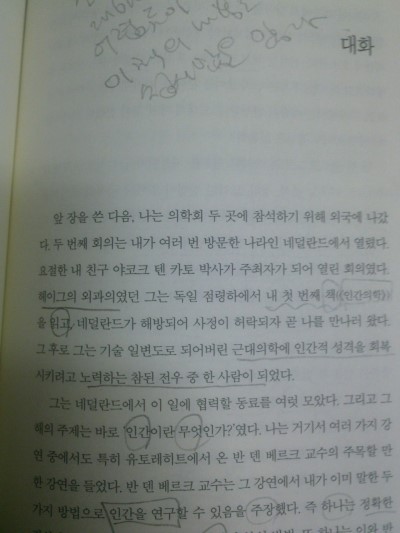 어려움이
이 책의 내용은
않을 있다
대화
앞 장을 쓴 다음, 나는 의학회 두 곳에 참석하기 위해 외국에 나갔
다. 두 번째 회의는 내가 여러 번 방문한 나라인 네덜란드에서 열렸다.
요절한 내 친구 야코크 텐 카토 박사가 주최자가 되어 열린 회의였다.
헤이그의 외과의였던 그는 독일 점령하에서 내 첫 번째 책《인간의학》
을 읽고, 네덜란드가 해방되어 사정이 허락되자 곧 나를 만나러 왔다.
그 후로 그는 기술 일변도로 되어버린 근대의학에 인간적 성격을 회복
시키려고 노력하는 참된 전우 중 한 사람이 되었다.
그는 네덜란드에서 이 일에 협력할 동료를 여럿 모았다. 그리고 그
해의 주제는 바로 '인간이란 무엇인가?'였다. 나는 거기서 여러 가지 강
연 중에서도 특히 유토레히트에서 온 반 덴 베르크 교수의 주목할 만
한 강연을 들었다. 반 덴 베르크 교수는 그 강연에서 내가 이미 말한 두
가지 방법으로 인간을 연구할 수 있음을 주장했다. 즉 하나는 정확한